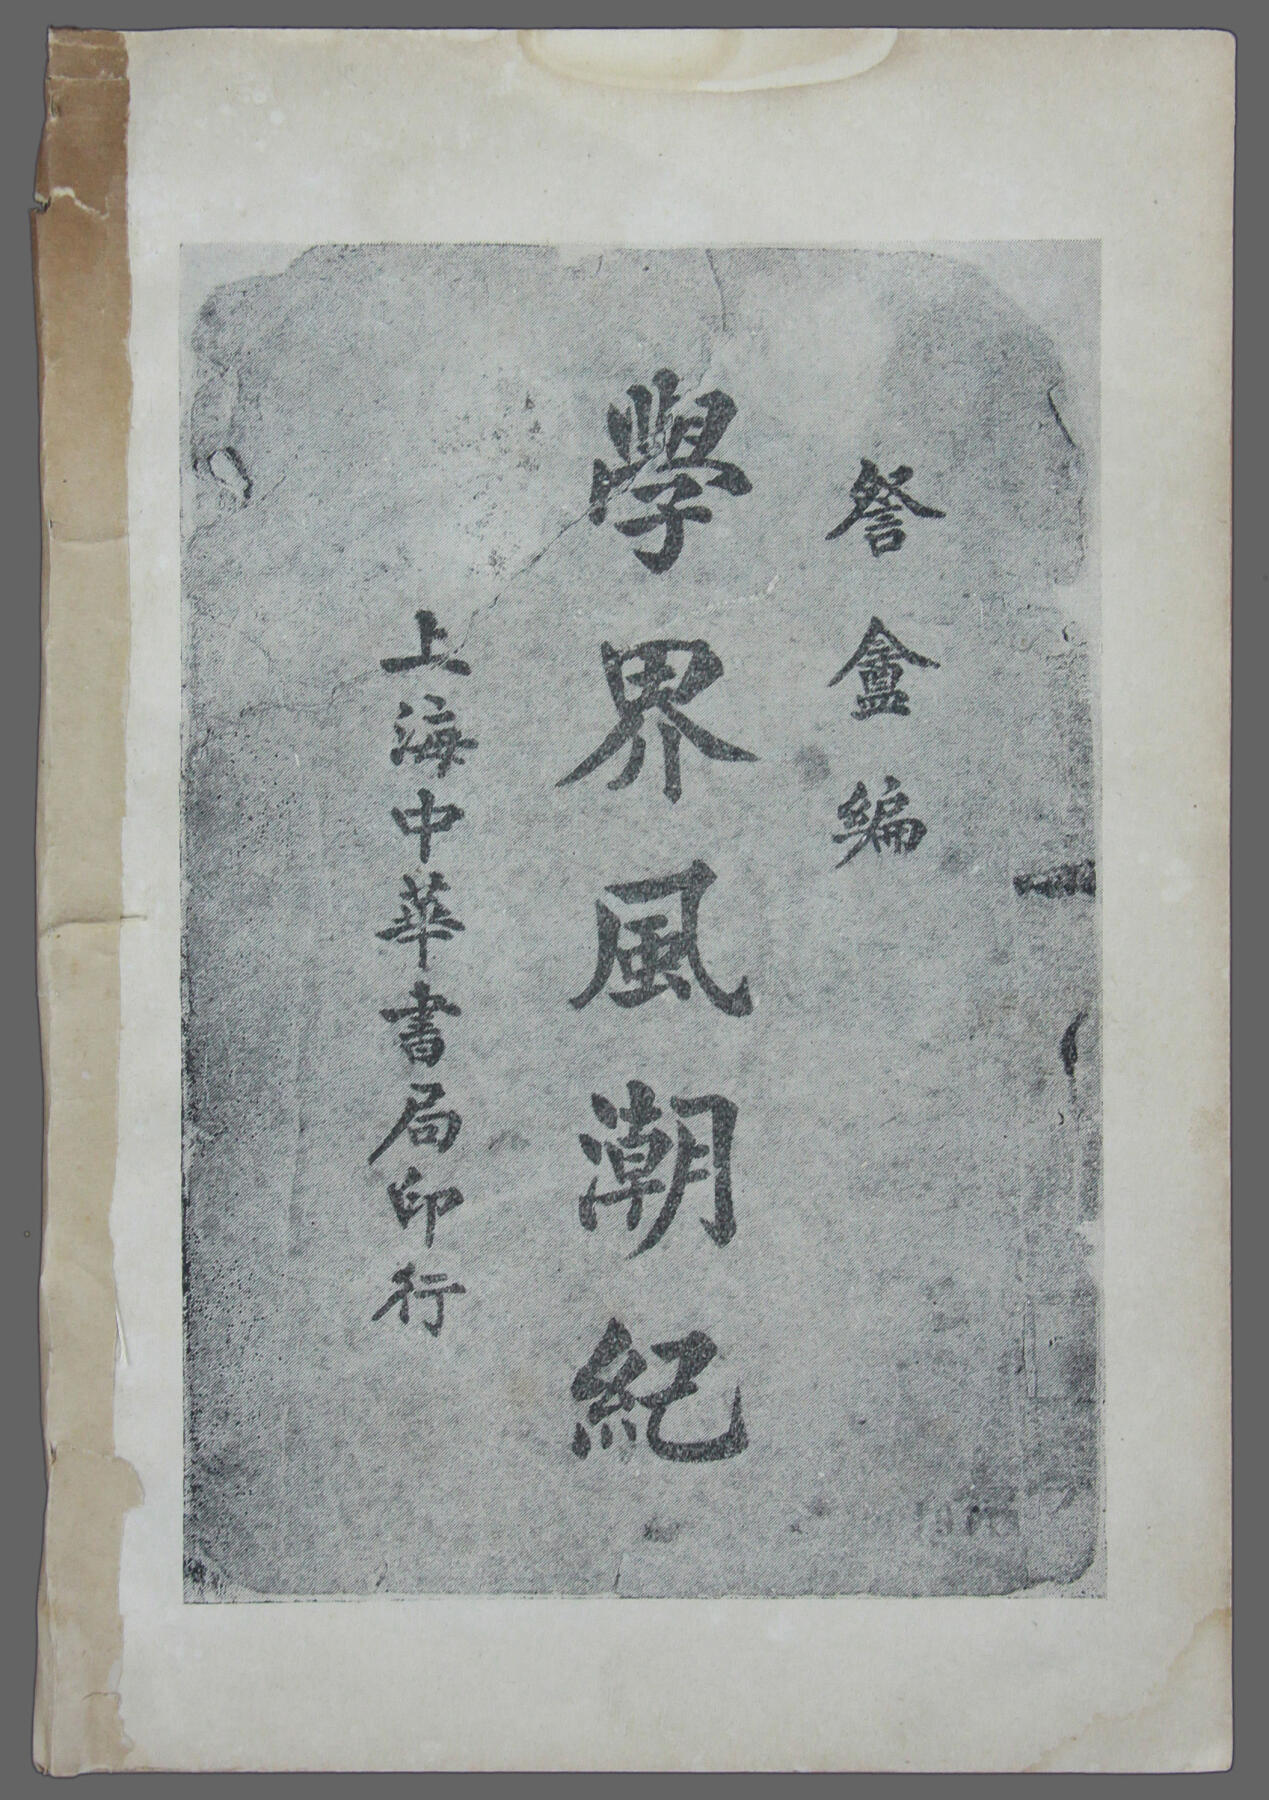 詧盦編
學界風潮紀
上海中華書局印行